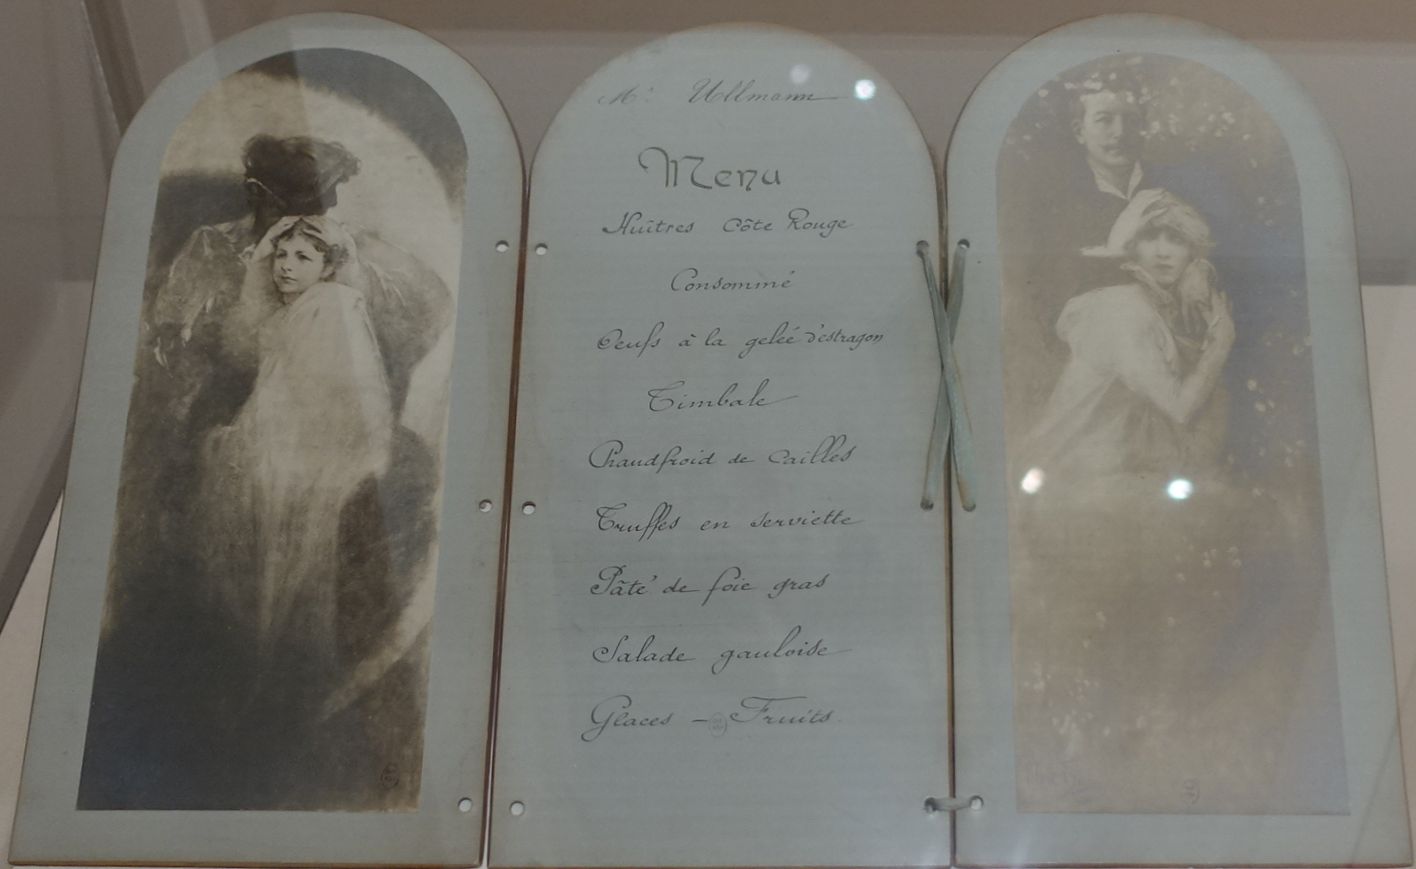 Mr Ullmann
Menu
Huîtres Côte Rouge
Consommé
Oeufs à la gelée d'estragon
Timbale
Chaudfroid de cailles
Truffes en serviette
Pâté de foie gras
Salade gauloise
Glaces - Fruits.